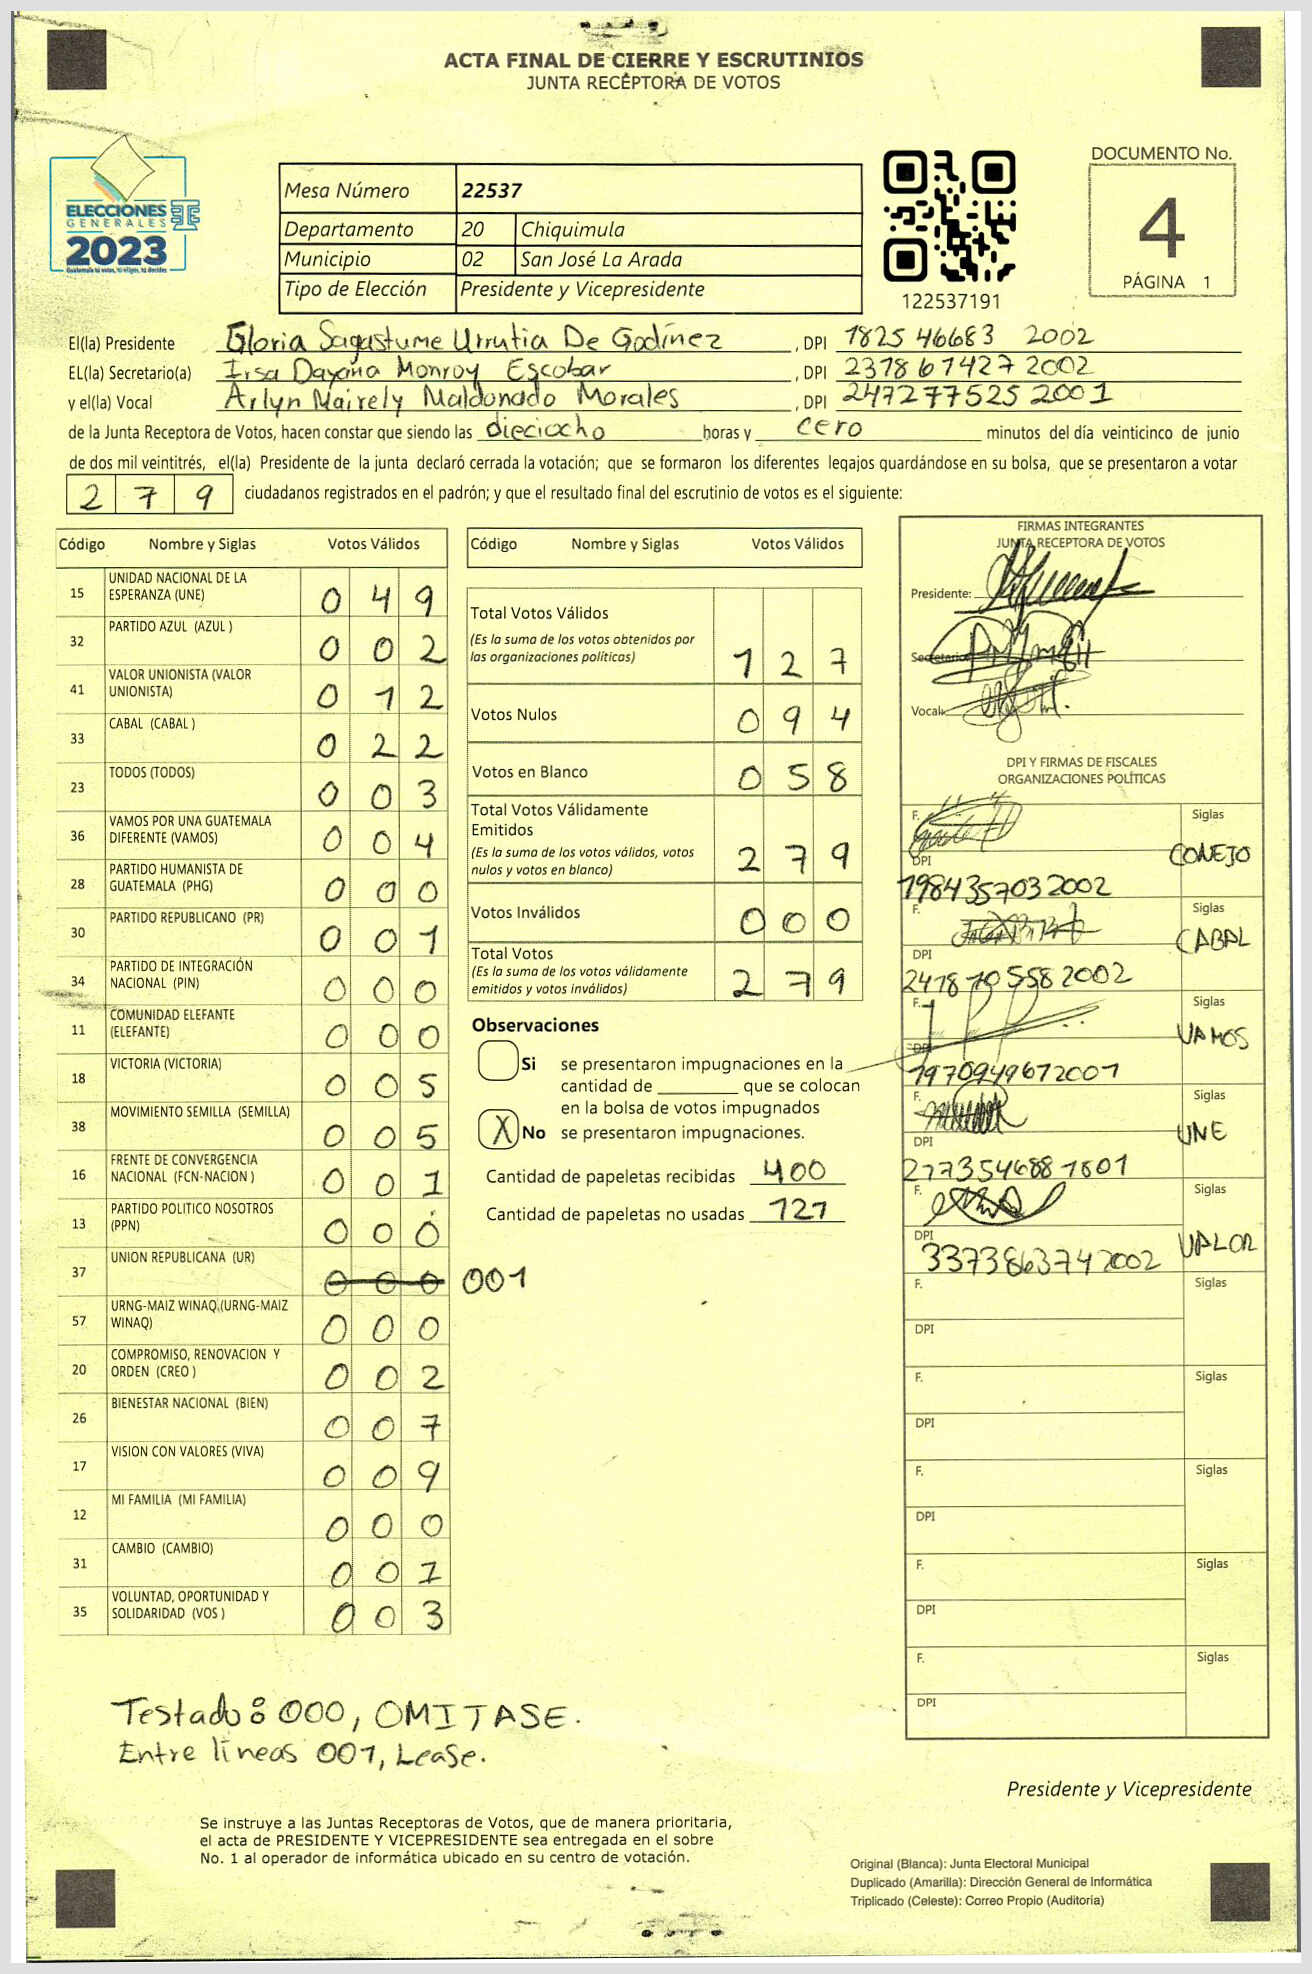 ACTA FINAL DE CIERRE Y ESCRUTINIOS
JUNTA RECEPTORA DE VOTOS
ELECCIONES
GENERALES
2023
Guatemala tú votas, tú eliges, tú decides
Mesa Número 22537
Departamento 20 Chiquimula
Municipio 02 San José La Arada
Tipo de Elección Presidente y Vicepresidente
122537191
DOCUMENTO No.
4
PÁGINA 1
El(la) Presidente Gloria Sagastume Urrutia De Godínez , DPI 1825 46683 2002
EL(la) Secretario(a) Irsa Dayana Monroy Escobar , DPI 2378 67427 2002
y el(la) Vocal Arlyn Mairely Maldonado Morales , DPI 2472775252001
de la Junta Receptora de Votos, hacen constar que siendo las dieciocho horas y cero minutos del día veinticinco de junio
de dos mil veintitrés, el(la) Presidente de la junta declaró cerrada la votación; que se formaron los diferentes legajos guardándose en su bolsa, que se presentaron a votar
2 7 9 ciudadanos registrados en el padrón; y que el resultado final del escrutinio de votos es el siguiente:
Código Nombre y Siglas Votos Válidos
15 UNIDAD NACIONAL DE LA ESPERANZA (UNE) 0 4 9
32 PARTIDO AZUL (AZUL ) 0 0 2
41 VALOR UNIONISTA (VALOR UNIONISTA) 0 1 2
33 CABAL (CABAL ) 0 2 2
23 TODOS (TODOS) 0 0 3
36 VAMOS POR UNA GUATEMALA DIFERENTE (VAMOS) 0 0 4
28 PARTIDO HUMANISTA DE GUATEMALA (PHG) 0 0 0
30 PARTIDO REPUBLICANO (PR) 0 0 1
34 PARTIDO DE INTEGRACIÓN NACIONAL (PIN) 0 0 0
11 COMUNIDAD ELEFANTE (ELEFANTE) 0 0 0
18 VICTORIA (VICTORIA) 0 0 5
38 MOVIMIENTO SEMILLA (SEMILLA) 0 0 5
16 FRENTE DE CONVERGENCIA NACIONAL (FCN-NACION ) 0 0 1
13 PARTIDO POLITICO NOSOTROS (PPN) 0 0 0
37 UNION REPUBLICANA (UR) 0 0 0 001
57 URNG-MAIZ WINAQ (URNG-MAIZ WINAQ) 0 0 0
20 COMPROMISO, RENOVACION Y ORDEN (CREO ) 0 0 2
26 BIENESTAR NACIONAL (BIEN) 0 0 7
17 VISION CON VALORES (VIVA) 0 0 9
12 MI FAMILIA (MI FAMILIA) 0 0 0
31 CAMBIO (CAMBIO) 0 0 1
35 VOLUNTAD, OPORTUNIDAD Y SOLIDARIDAD (VOS ) 0 0 3
Código Nombre y Siglas Votos Válidos
Total Votos Válidos
(Es la suma de los votos obtenidos por
las organizaciones políticas) 1 2 7
Votos Nulos 0 9 4
Votos en Blanco 0 5 8
Total Votos Válidamente
Emitidos
(Es la suma de los votos válidos, votos
nulos y votos en blanco) 2 7 9
Votos Inválidos 0 0 0
Total Votos
(Es la suma de los votos válidamente
emitidos y votos inválidos) 2 7 9
Observaciones
Si se presentaron impugnaciones en la
cantidad de ________ que se colocan
en la bolsa de votos impugnados
X No se presentaron impugnaciones.
Cantidad de papeletas recibidas 400
Cantidad de papeletas no usadas 121
FIRMAS INTEGRANTES
JUNTA RECEPTORA DE VOTOS
Presidente:
Secretario:
Vocal:
DPI Y FIRMAS DE FISCALES
ORGANIZACIONES POLÍTICAS
F. Siglas
CONEJO
DPI
1984357032002
F. Siglas
CABAL
DPI
2418705582002
F. Siglas
VAMOS
DPI
1970949672001
F. Siglas
UNE
DPI
2773546881801
F. Siglas
VALOR
DPI
3373863742002
F. Siglas
DPI
F. Siglas
DPI
F. Siglas
DPI
F. Siglas
DPI
F. Siglas
DPI
Testado: 000, OMITASE.
Entre líneas 001, Lease.
Presidente y Vicepresidente
Se instruye a las Juntas Receptoras de Votos, que de manera prioritaria,
el acta de PRESIDENTE Y VICEPRESIDENTE sea entregada en el sobre
No. 1 al operador de informática ubicado en su centro de votación.
Original (Blanca): Junta Electoral Municipal
Duplicado (Amarilla): Dirección General de Informática
Triplicado (Celeste): Correo Propio (Auditoría)